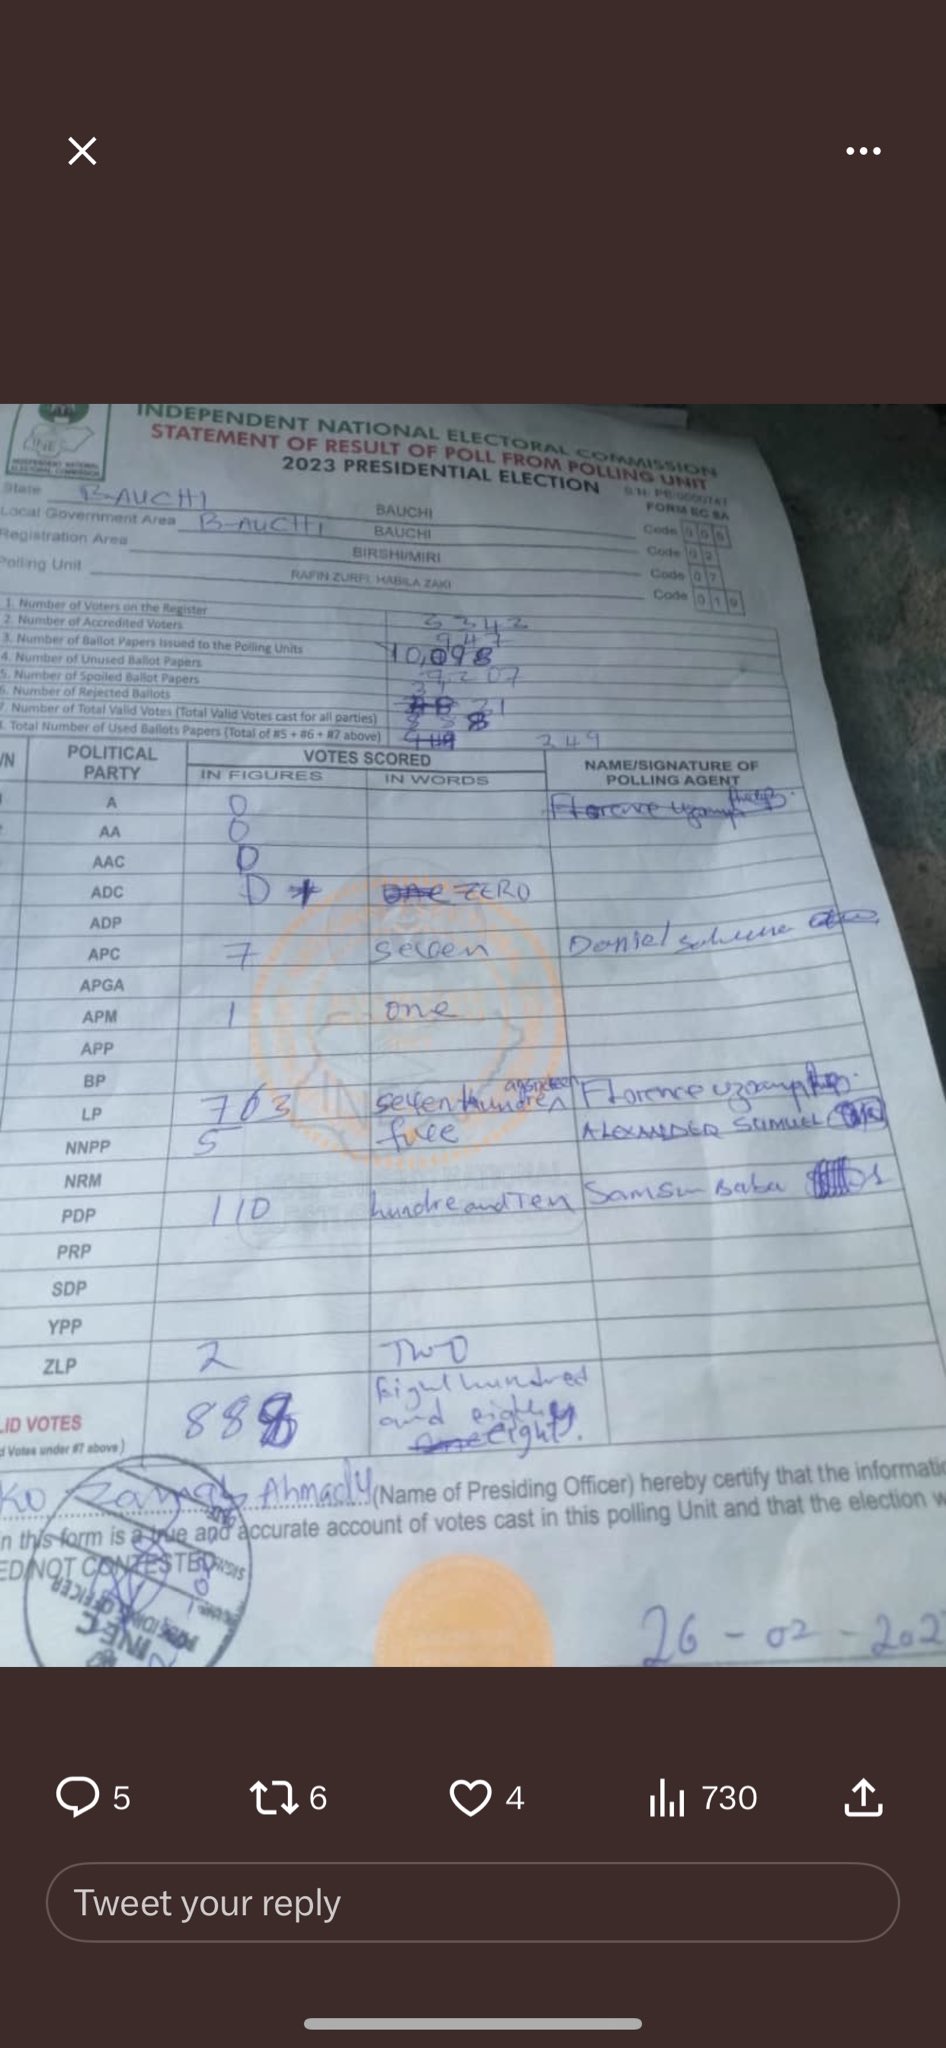 INDEPENDENT NATIONAL ELECTORAL COMMISSION
STATEMENT OF RESULT OF POLL FROM POLLING UNIT
2023 PRESIDENTIAL ELECTION
FORM EC 8A
State B-AUCHI BAUCHI Code
Local Government Area B-AUCHI BAUCHI Code 0 2
Registration Area BIRSHI/MIRI Code 0 7
Polling Unit RAFIN ZURFI, HABILA ZAKI Code 0 1 9
1. Number of Voters on the Register 3342
2. Number of Accredited Voters 947
3. Number of Ballot Papers Issued to the Polling Units 10,098
4. Number of Unused Ballot Papers 9,207
5. Number of Spoiled Ballot Papers
6. Number of Rejected Ballots 21
7. Number of Total Valid Votes (Total Valid Votes cast for all parties) 888
8. Total Number of Used Ballots Papers (Total of #5 + #6 + #7 above)
/N POLITICAL PARTY VOTES SCORED NAME/SIGNATURE OF POLLING AGENT
IN FIGURES IN WORDS
A 0 Florence
AA 0
AAC 0
ADC 0 ZERO
ADP
APC 7 seven Daniel
APGA
APM 1 one
APP
BP
LP 703 Florence
NNPP 5 ALEXANDER SAMUEL
NRM
PDP 110 hundre and Ten Baba
PRP
SDP
YPP
ZLP 2 TWO
LID VOTES 888 Eight hundred and eighty eight.
d Votes under #7 above)
Ahmady (Name of Presiding Officer) hereby certify that the informatio
n this form is a true and accurate account of votes cast in this polling Unit and that the election w
ED/NOT CONTESTED
PRESIDING OFFICER
INEC
26-02-202
5 6 4 730
Tweet your reply